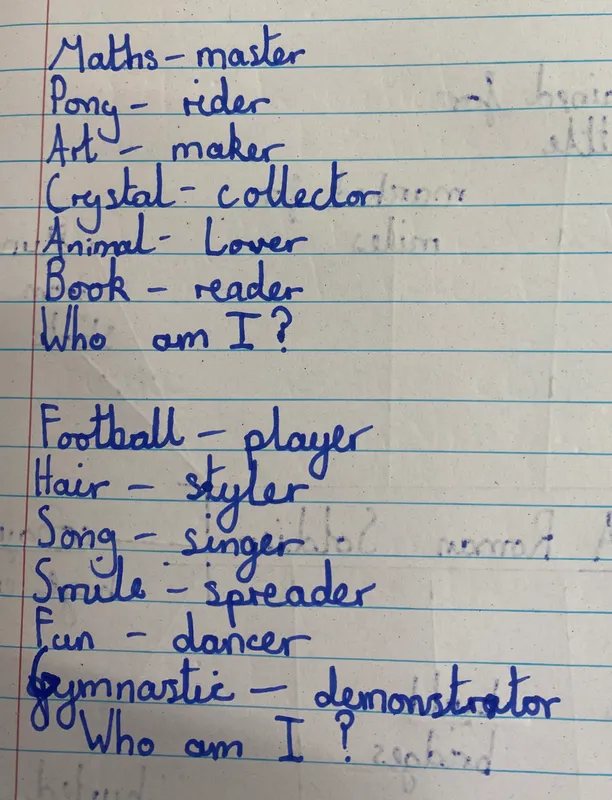 Maths - master
Pony - rider
Art - maker
Crystal - collector
Animal - Lover
Book - reader
Who am I?
Football - player
Hair - styler
Song - singer
Smile - spreader
Fun - dancer
Gymnastic - demonstrator
Who am I?